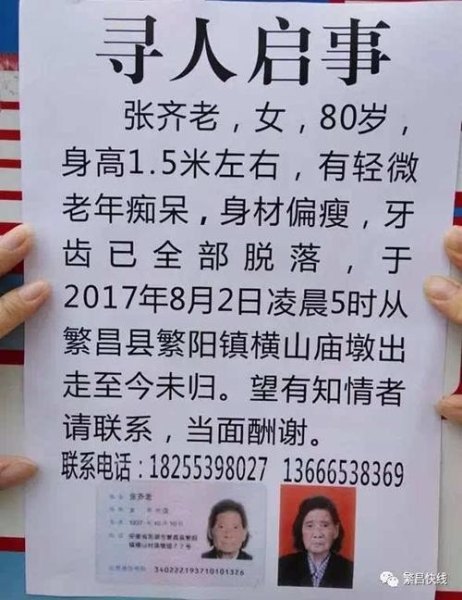 寻人启事
张齐老，女，80岁，
身高1.5米左右，有轻微
老年痴呆，身材偏瘦，牙
齿已全部脱落，于
2017年8月2日凌晨5时从
繁昌县繁阳镇横山庙墩出
走至今未归。望有知情者
请联系，当面酬谢。
联系电话：18255398027 13666538369
张齐老
340222193710101326
繁昌快线